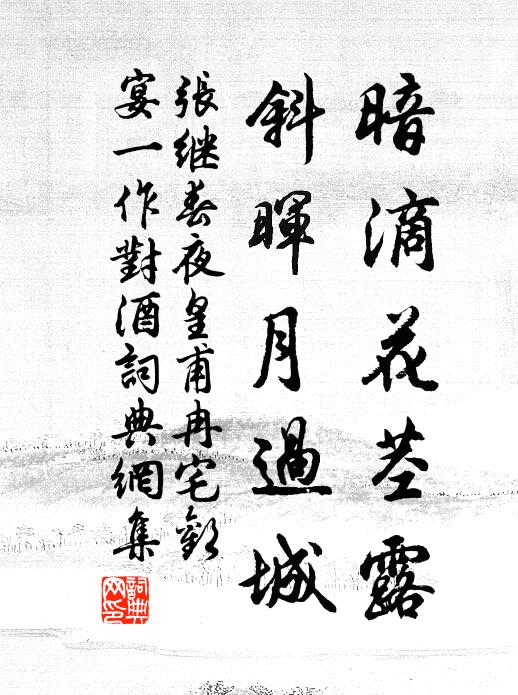 暗滴花茎露
斜暉月過城
張继春夜皇甫冉宅歡
宴一作對酒詞典網集
詞典
网印